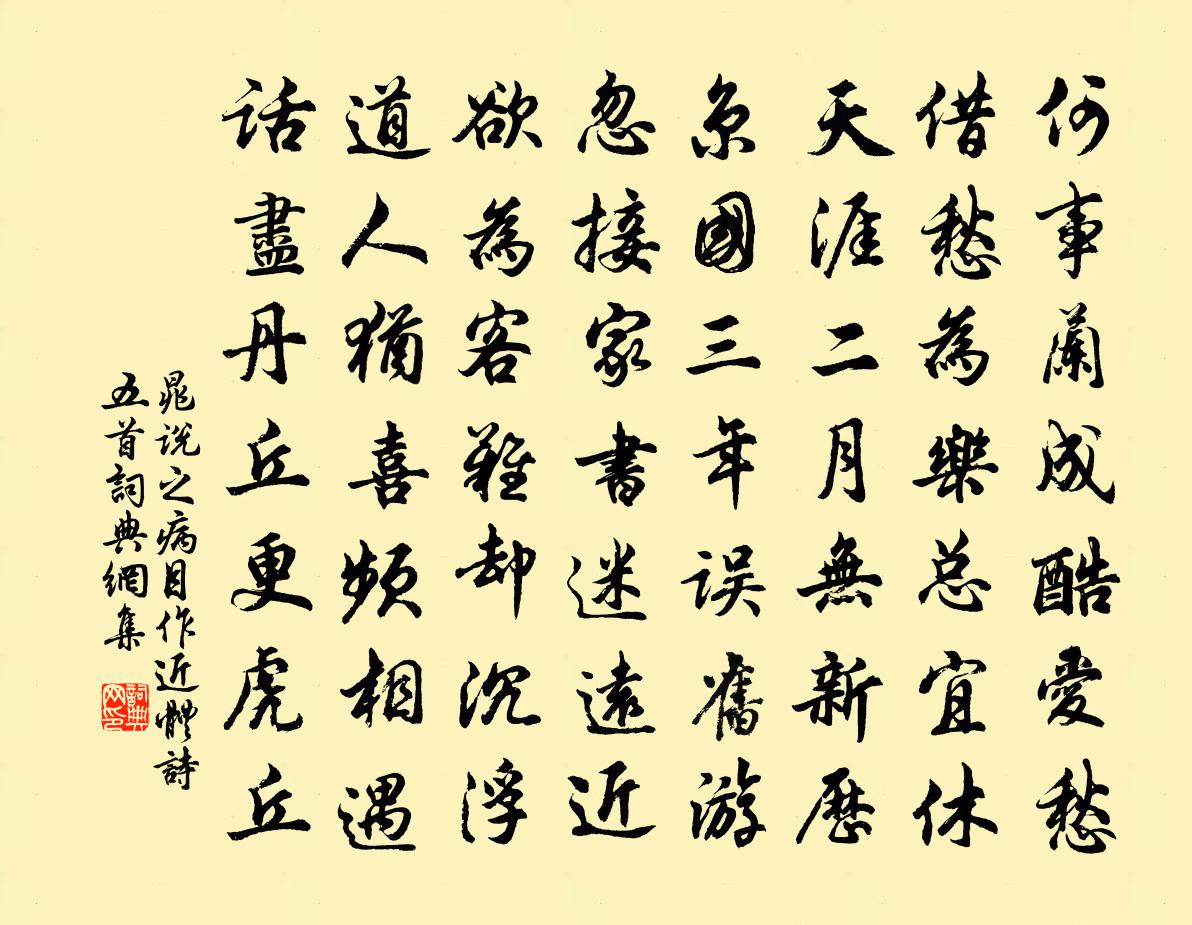 何事蘭成酷愛愁
借愁為樂总宜休
天涯二月無新歷
京國三年误舊游
忽接家書迷遠近
欲為客難却沉浮
道人猶喜頻相遇
话盡丹丘更虎丘
晁说之病目作近體詩
五首詞典網集
詞典网印